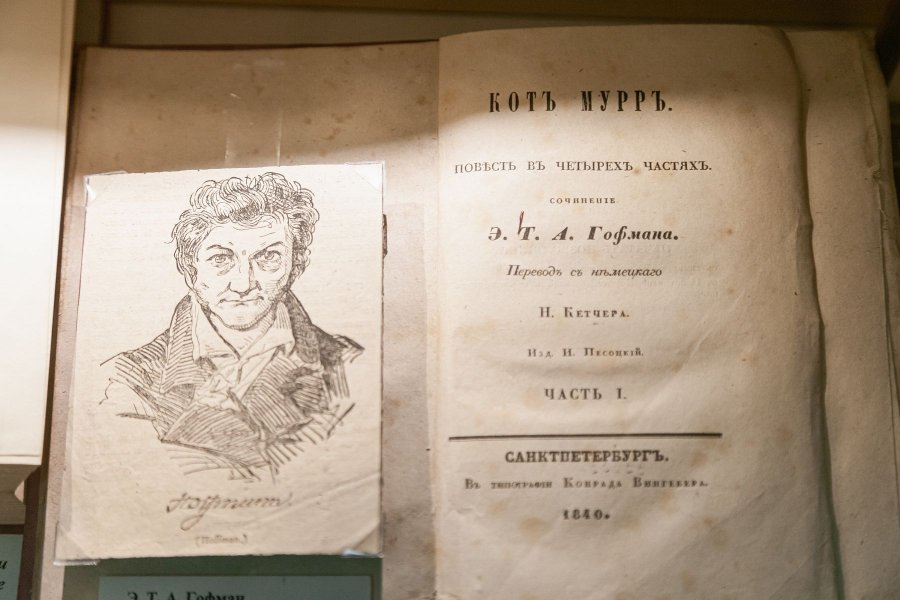 КОТЪ МУРРЪ.
ПОВѢСТЬ ВЪ ЧЕТЫРЕХЪ ЧАСТЯХЪ.
СОЧИНЕНІЕ
Э. Т. А. Гофмана.
Переводъ съ нѣмецкаго
Н. Кетчера.
Изд. И. Песоцкій.
ЧАСТЬ I.
САНКТПЕТЕРБУРГЪ.
Въ типографіи Конрада Вингебера.
1840.
Э. Т. А. Гофман